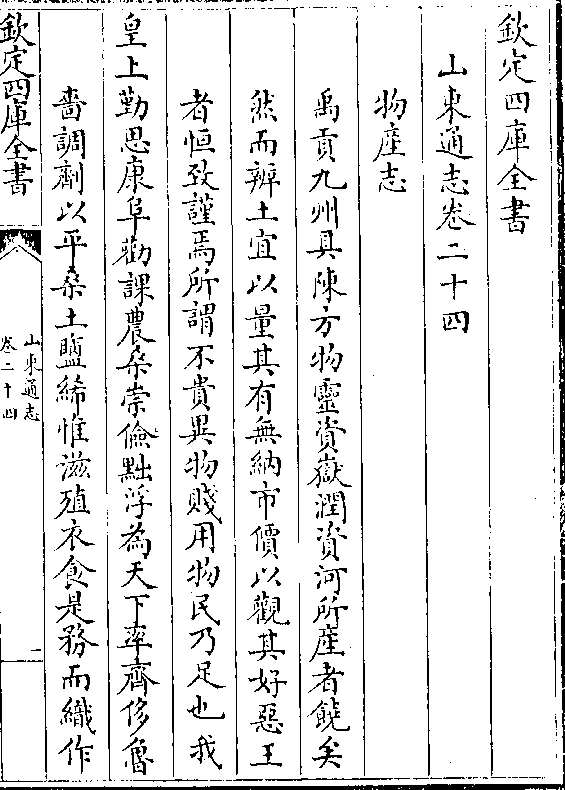 欽定四庫全書
山東通志卷二十四
物産志
禹貢九州具陳方物靈資嶽潤資河所産者饒矣
然而辨土宜以量其有無納市價以觀其好惡王
者恒致謹焉所謂不貴異物賤用物民乃足也我
皇上勤思康阜勸課農桑崇儉黜浮為天下率齊侈魯
嗇調劑以平桑土鹽絺惟滋殖衣食是務而織作
欽定四庫全書
山東通志
卷二十四
一